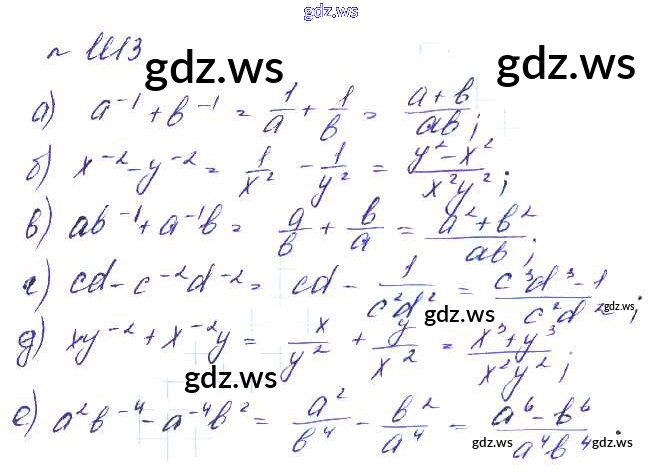 gdz.ws
№ 1113
gdz.ws gdz.ws
а) a⁻¹ + b⁻¹ = 1/a + 1/b = (a + b)/(ab);
б) x⁻² - y⁻² = 1/x² - 1/y² = (y² - x²)/(x²y²);
в) ab⁻¹ + a⁻¹b = a/b + b/a = (a² + b²)/(ab);
г) cd - c⁻²d⁻² = cd - 1/(c²d²) = (c³d³ - 1)/(c²d²);
gdz.ws gdz.ws
д) xy⁻² + x⁻²y = x/y² + y/x² = (x³ + y³)/(x²y²);
gdz.ws
е) a²b⁻⁴ - a⁻⁴b² = a²/b⁴ - b²/a⁴ = (a⁶ - b⁶)/(a⁴b⁴).
gdz.ws gdz.ws